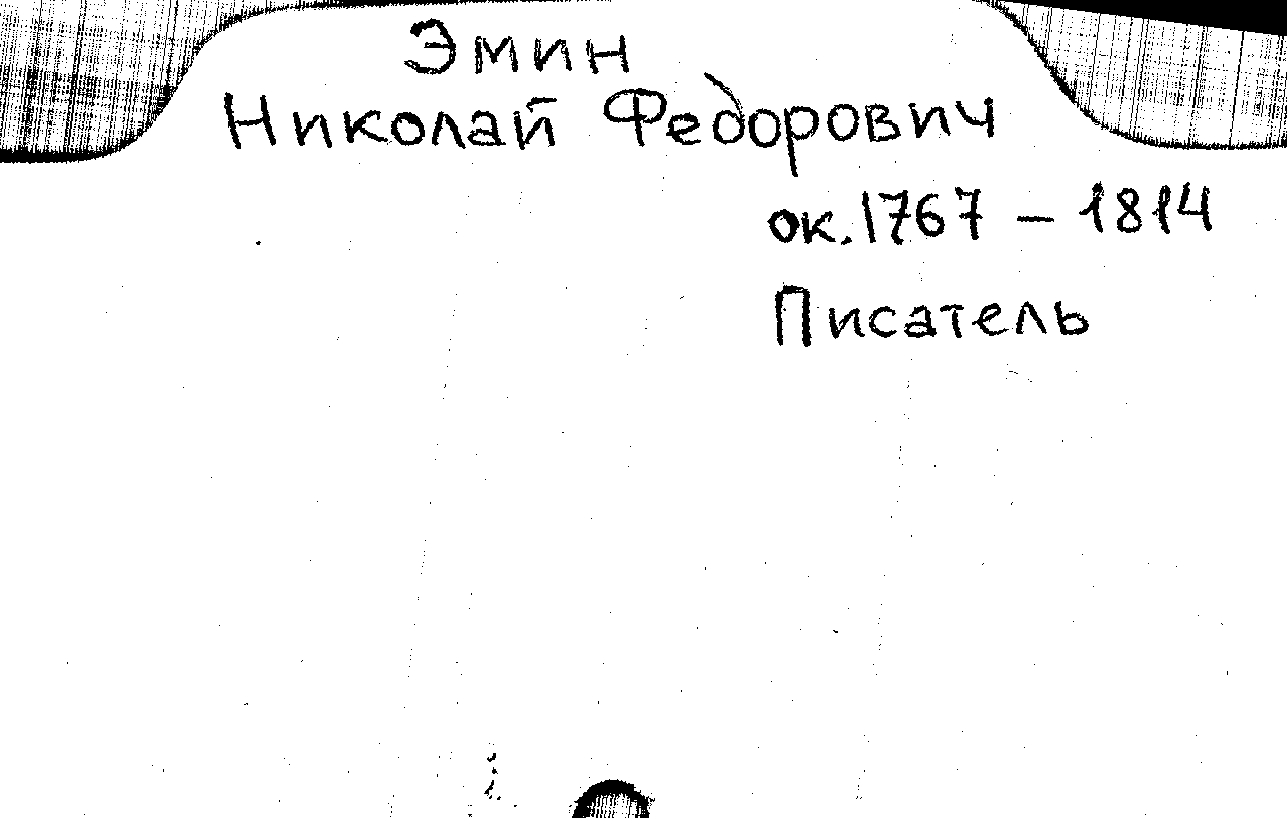 Эмин
Николай Федорович
ок. 1767 – 1814
Писатель